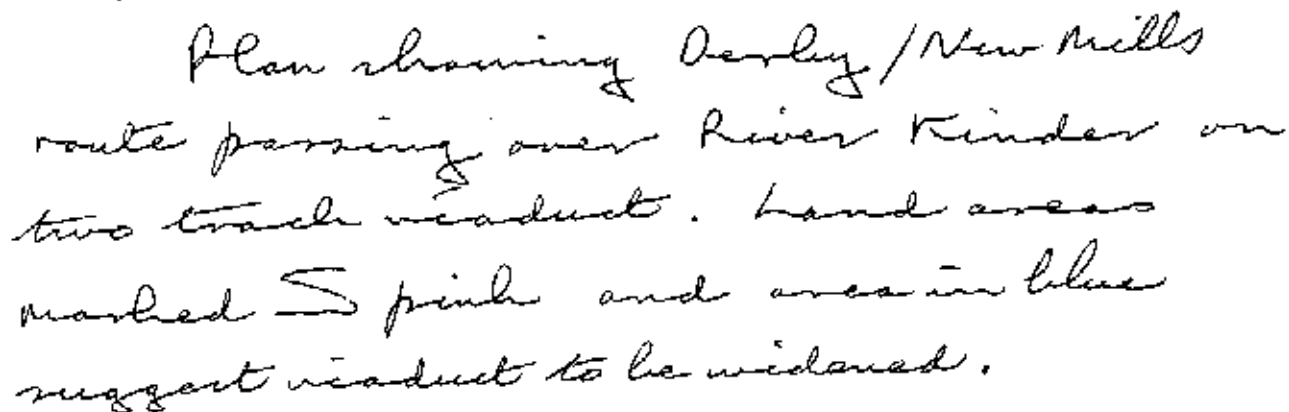 Plan showing Derby / New Mills
route passing over River Kinder on
two track viaduct. Land areas
marked S pink and area in blue
suggest viaduct to be widened.